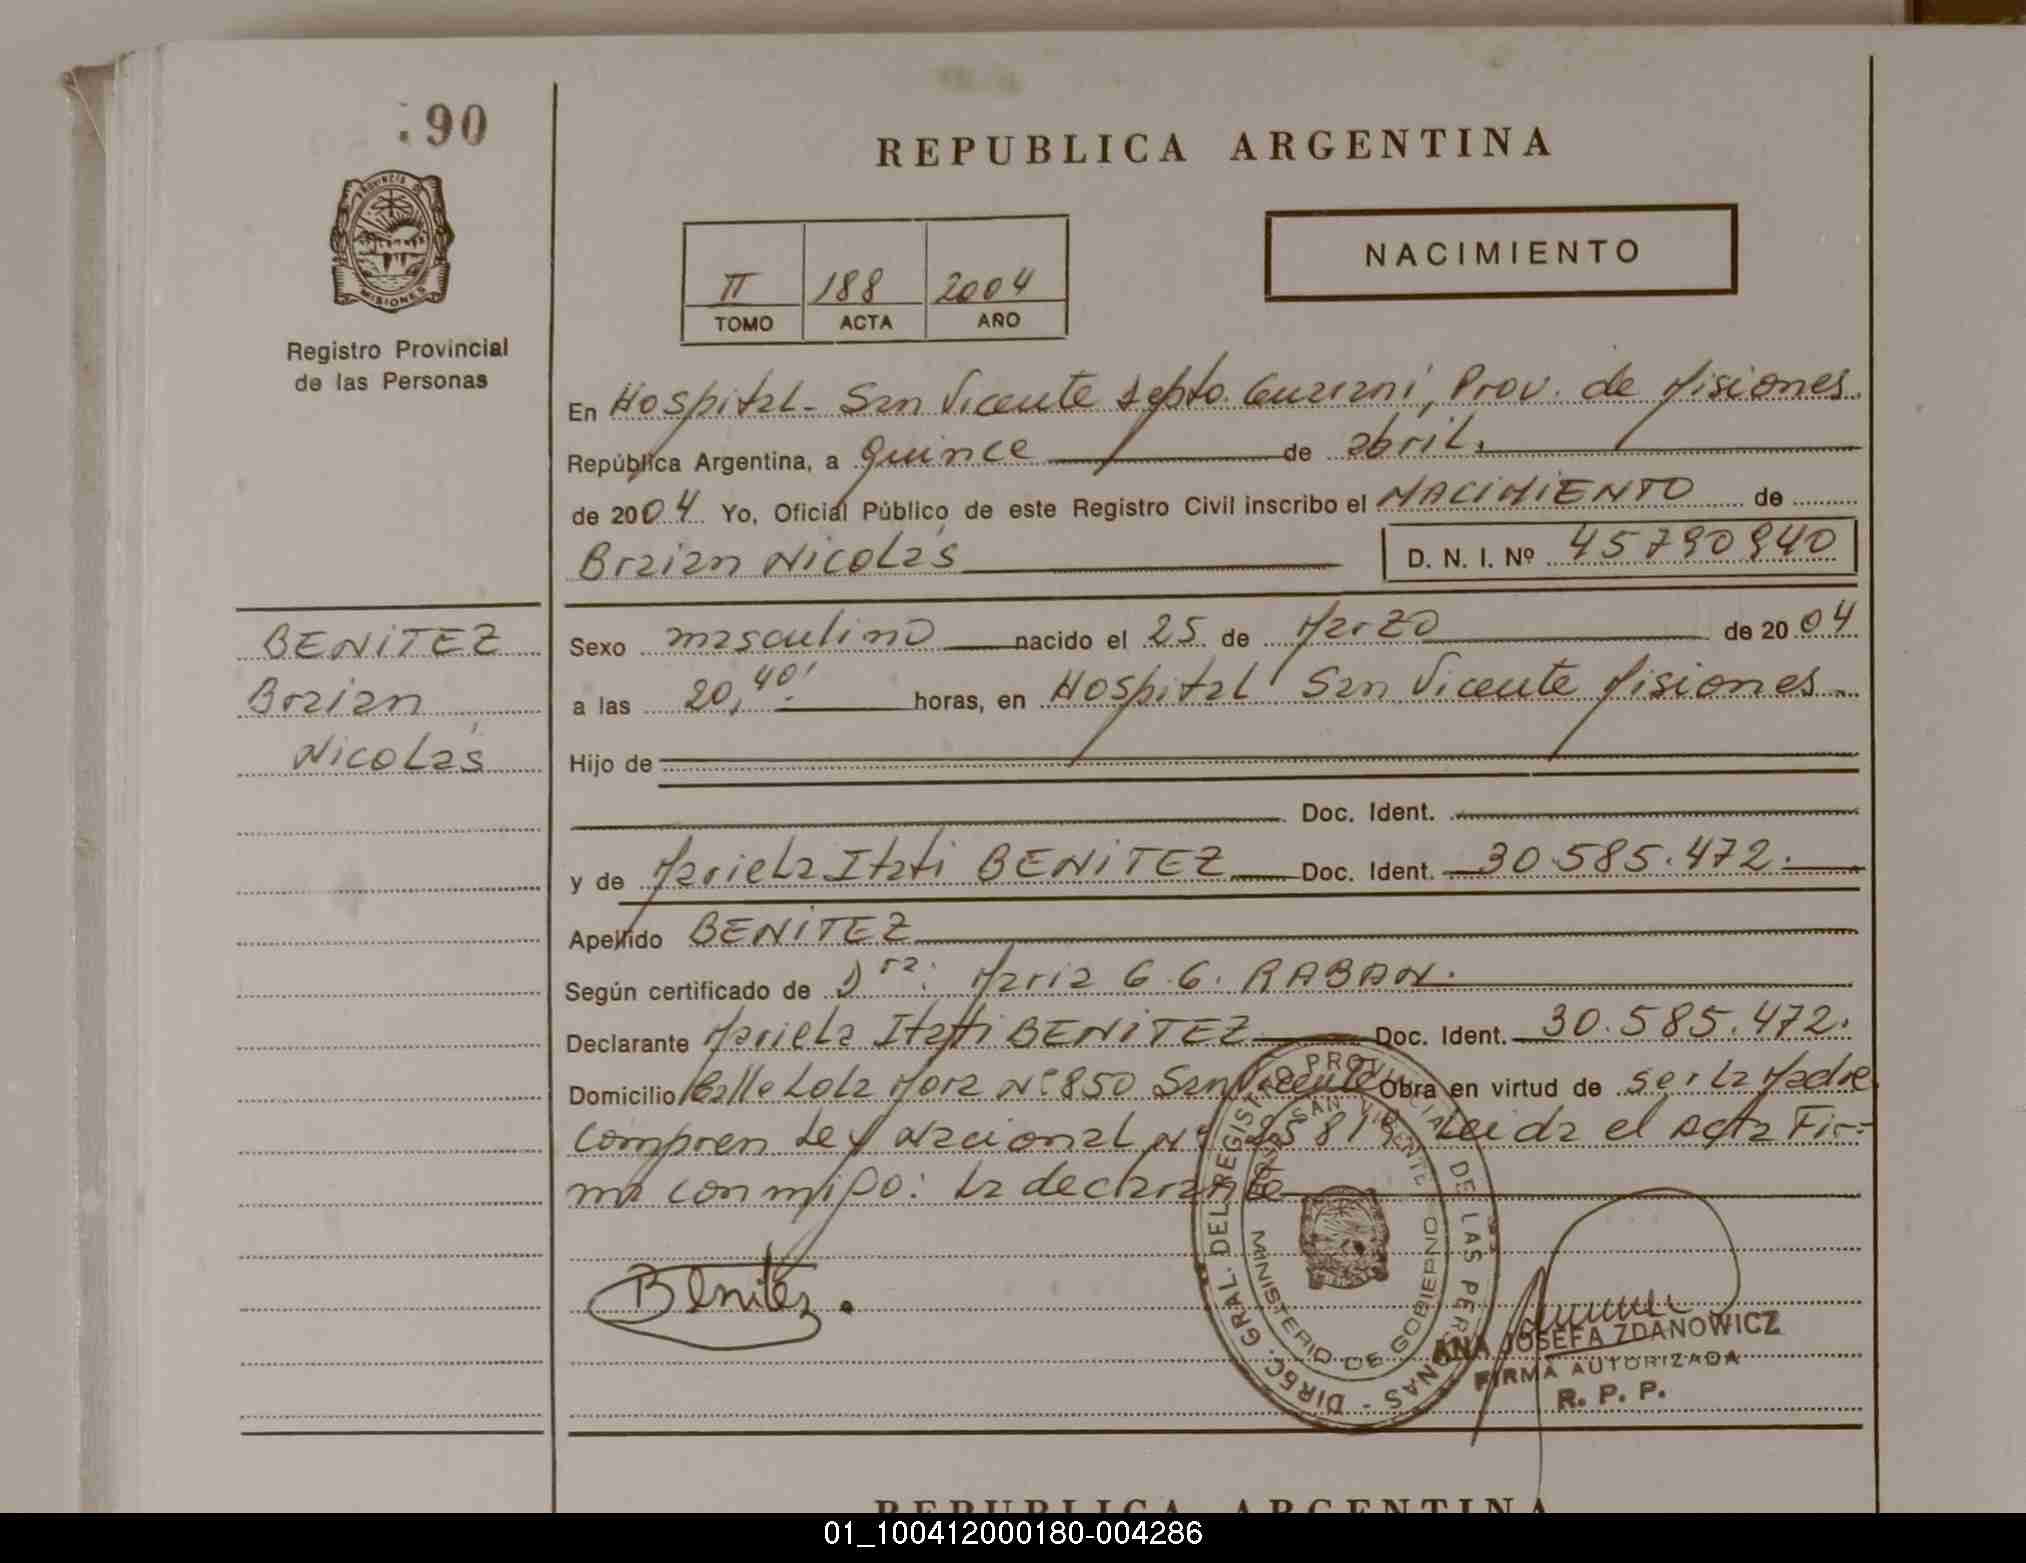 90
REPUBLICA ARGENTINA
PROVINCIA DE
MISIONES
Registro Provincial
de las Personas
II 188 2004
TOMO ACTA AÑO
NACIMIENTO
En Hospital - San Vicente Depto. Guaraní, Prov. de Misiones.
República Argentina, a quince de abril.
de 2004 Yo, Oficial Público de este Registro Civil inscribo el NACIMIENTO de
Braian Nicolás D. N. I. Nº 45790940
BENITEZ
Braian
Nicolás
Sexo masculino nacido el 25 de Marzo de 2004
a las 20,40'. horas, en Hospital San Vicente Misiones.
Hijo de
Doc. Ident.
y de Mariela Itati BENITEZ Doc. Ident. 30.585.472.
Apellido BENITEZ
Según certificado de Dra: Maria G. G. RABAN.
Declarante Mariela Itati BENITEZ Doc. Ident. 30.585.472.
Domicilio Calle Lola Mora Nº 850 San Vicente Obra en virtud de ser la Madre
Compren Ley Nacional Nº Leida el Acta Fir=
ma conmigo: La declarante
Benitez.
DIREC. GRAL. DEL REGISTRO PROVINCIAL DE LAS PERSONAS -
SAN VICENTE
MINISTERIO DE GOBIERNO
ANA JOSEFA ZDANOWICZ
FIRMA AUTORIZADA
R. P. P.
REPUBLICA ARGENTINA
01_100412000180-004286